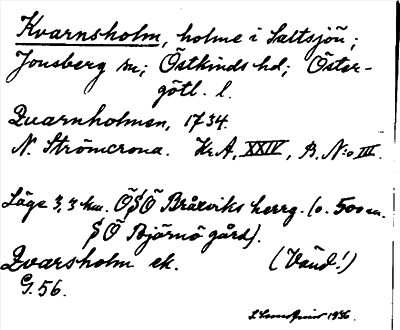 Kvarnsholm, holme i Saltsjön;
Jonsberg sn; Östkinds hd; Öster-
götl. l.
Qvarnholmen, 1734.
N. Strömcrona. Kr. A, XXIV, B. No III.
Läge 3,3 km. ÖSÖ Bråxviks herrg. (o. 500 m.
SÖ Björnö gård).
Qvarsholm ek. (Vänd!)
G. 56.
1936.